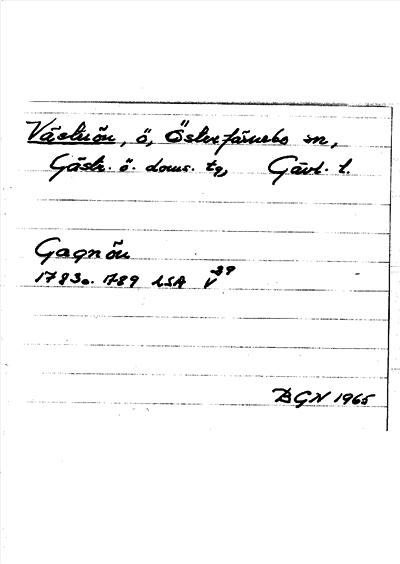 Västnön, ö, Österfärnebo sn,
Gästr. ö. doms. tg, Gävl. l.
Gagnön
1783 o. 1789 LSA V 39
DGN 1965